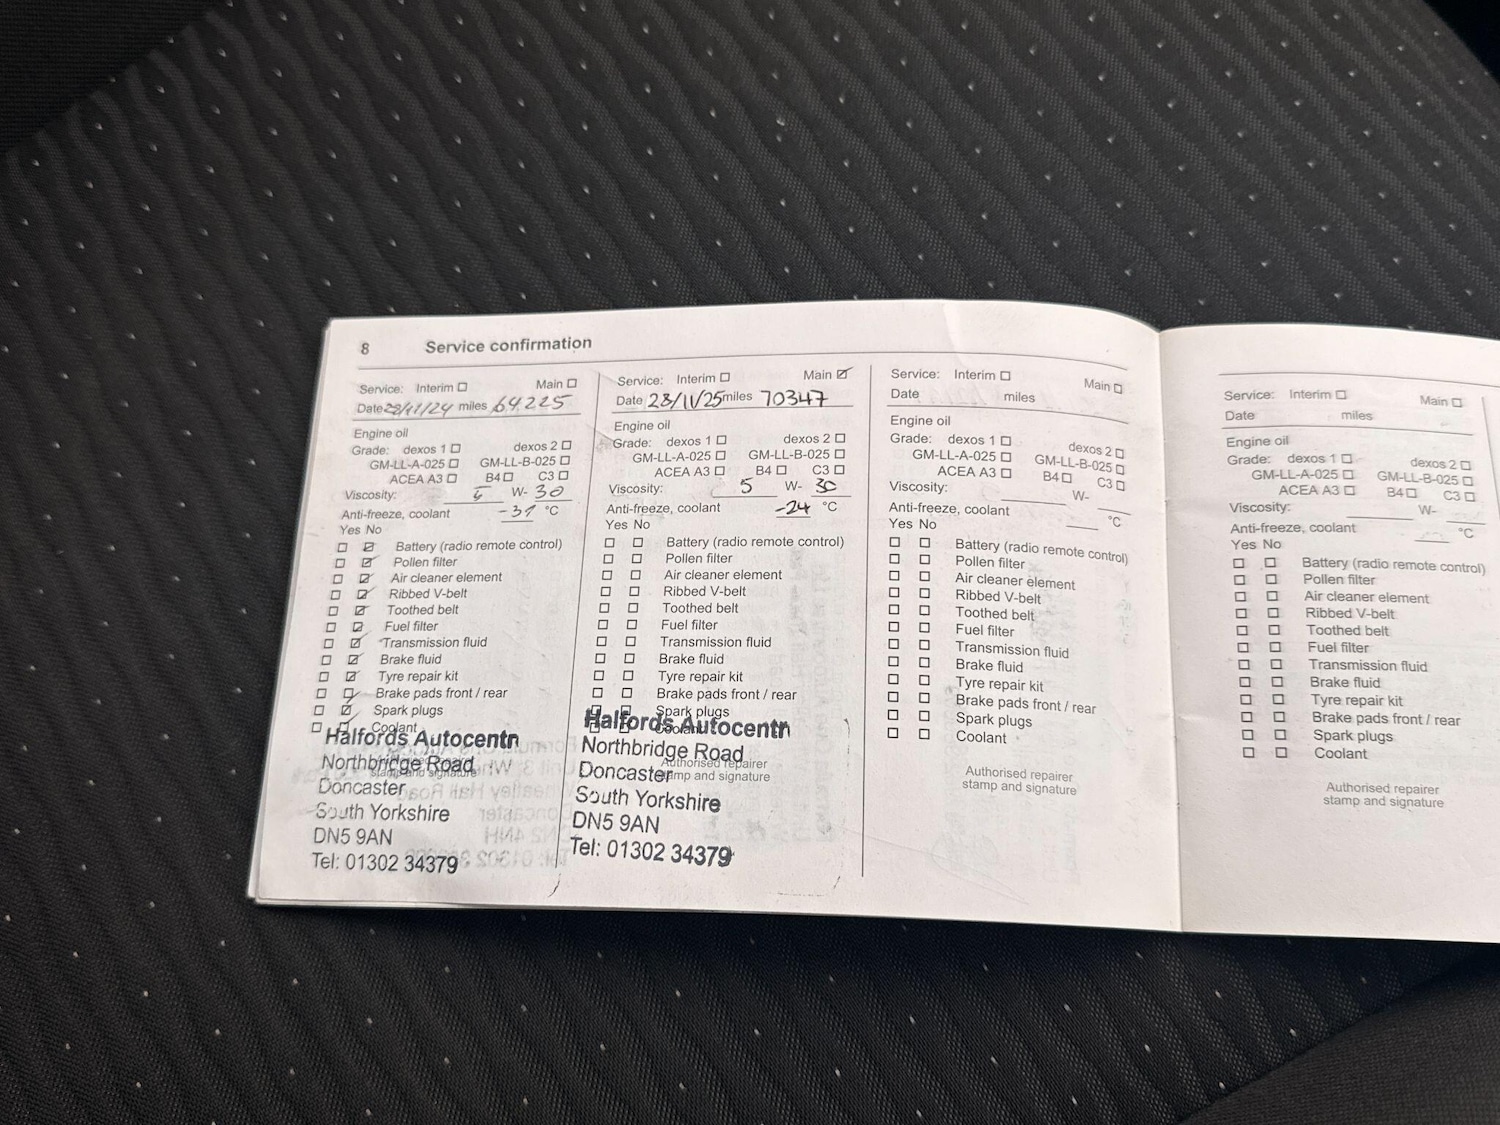 8 Service confirmation
Service: Interim Main
Date 28/11/24 miles 64225
Engine oil
Grade: dexos 1 dexos 2
GM-LL-A-025 GM-LL-B-025
ACEA A3 B4 C3
Viscosity: 5 W- 30
Anti-freeze, coolant -31 °C
Yes No
Battery (radio remote control)
Pollen filter
Air cleaner element
Ribbed V-belt
Toothed belt
Fuel filter
Transmission fluid
Brake fluid
Tyre repair kit
Brake pads front / rear
Spark plugs
Coolant
Halfords Autocentr
Northbridge Road
Authorised repairer
stamp and signature
Doncaster
South Yorkshire
DN5 9AN
Tel: 01302 34379
Service: Interim Main
Date 28/11/25 miles 70347
Engine oil
Grade: dexos 1 dexos 2
GM-LL-A-025 GM-LL-B-025
ACEA A3 B4 C3
Viscosity: 5 W- 30
Anti-freeze, coolant -24 °C
Yes No
Battery (radio remote control)
Pollen filter
Air cleaner element
Ribbed V-belt
Toothed belt
Fuel filter
Transmission fluid
Brake fluid
Tyre repair kit
Brake pads front / rear
Spark plugs
Coolant
Halfords Autocentr
Northbridge Road
Authorised repairer
stamp and signature
Doncaster
South Yorkshire
DN5 9AN
Tel: 01302 34379
Service: Interim Main
Date miles
Engine oil
Grade: dexos 1 dexos 2
GM-LL-A-025 GM-LL-B-025
ACEA A3 B4 C3
Viscosity: W-
Anti-freeze, coolant °C
Yes No
Battery (radio remote control)
Pollen filter
Air cleaner element
Ribbed V-belt
Toothed belt
Fuel filter
Transmission fluid
Brake fluid
Tyre repair kit
Brake pads front / rear
Spark plugs
Coolant
Authorised repairer
stamp and signature
Service: Interim Main
Date miles
Engine oil
Grade: dexos 1 dexos 2
GM-LL-A-025 GM-LL-B-025
ACEA A3 B4 C3
Viscosity: W-
Anti-freeze, coolant °C
Yes No
Battery (radio remote control)
Pollen filter
Air cleaner element
Ribbed V-belt
Toothed belt
Fuel filter
Transmission fluid
Brake fluid
Tyre repair kit
Brake pads front / rear
Spark plugs
Coolant
Authorised repairer
stamp and signature